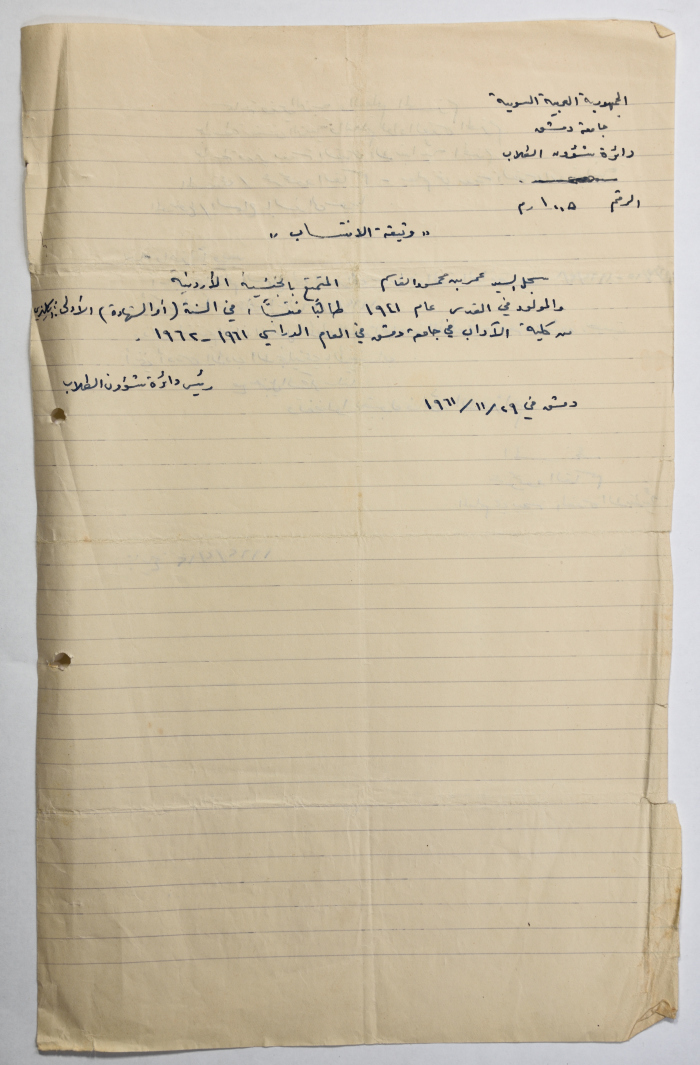 الجمهورية العربية السورية
جامعة دمشق
دائرة شؤون الطلاب
الرقم ١٠٠٥ رم
« وثيقة الانتساب »
سجل السيد عمر بن محمود القاسم المتمتع بالجنسية الأردنية
والمولود في القدس عام ١٩٤١ طالبًا منتسبًا، في السنة (أو الشهادة) الأولى:
من كلية الآداب في جامعة دمشق في العام الدراسي ١٩٦١-١٩٦٢.
رئيس دائرة شؤون الطلاب
دمشق في ٢٩/١١/١٩٦١